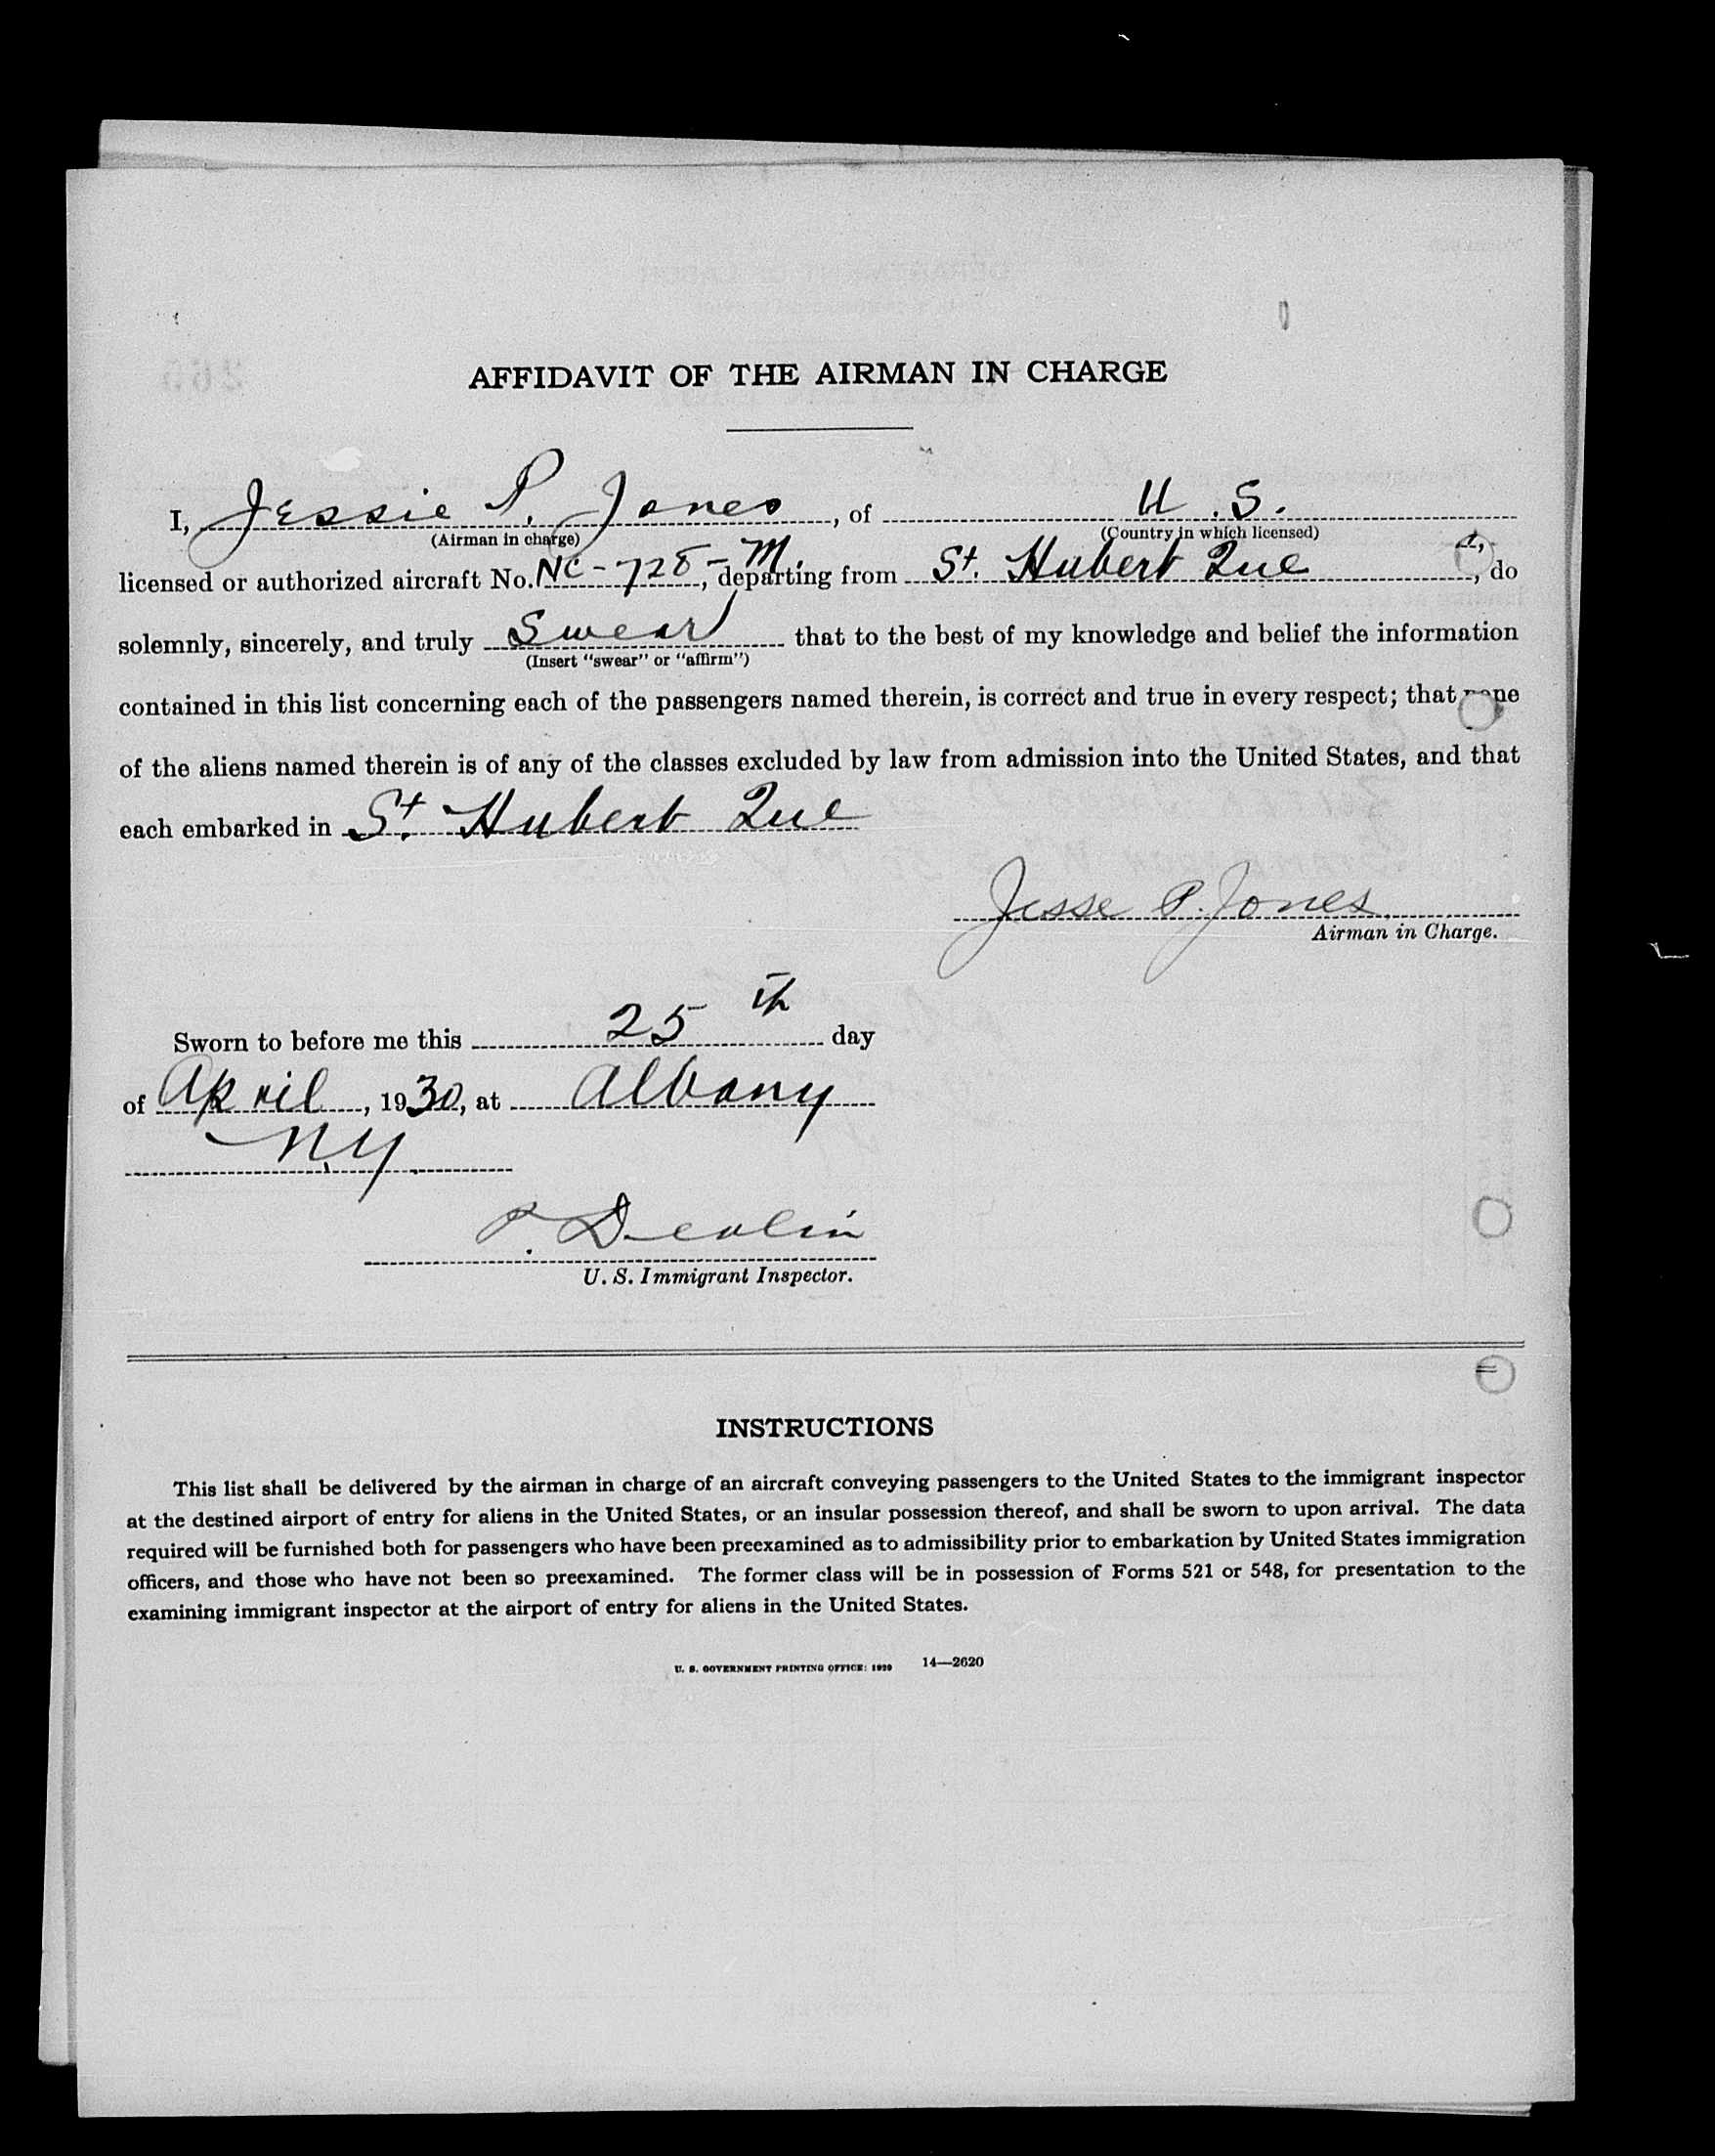 AFFIDAVIT OF THE AIRMAN IN CHARGE
I, Jessie P. Jones, of U.S.
(Airman in charge) (Country in which licensed)
licensed or authorized aircraft No. NC-728-M, departing from St. Hubert Que, do
solemnly, sincerely, and truly Swear that to the best of my knowledge and belief the information
(Insert "swear" or "affirm")
contained in this list concerning each of the passengers named therein, is correct and true in every respect; that none
of the aliens named therein is of any of the classes excluded by law from admission into the United States, and that
each embarked in St. Hubert Que
Jesse P. Jones
Airman in Charge.
Sworn to before me this 25th day
of April, 1930, at Albany
N.Y.
P. Devlin
U. S. Immigrant Inspector.
INSTRUCTIONS
This list shall be delivered by the airman in charge of an aircraft conveying passengers to the United States to the immigrant inspector
at the destined airport of entry for aliens in the United States, or an insular possession thereof, and shall be sworn to upon arrival. The data
required will be furnished both for passengers who have been preexamined as to admissibility prior to embarkation by United States immigration
officers, and those who have not been so preexamined. The former class will be in possession of Forms 521 or 548, for presentation to the
examining immigrant inspector at the airport of entry for aliens in the United States.
U. S. GOVERNMENT PRINTING OFFICE: 1929 14—2620